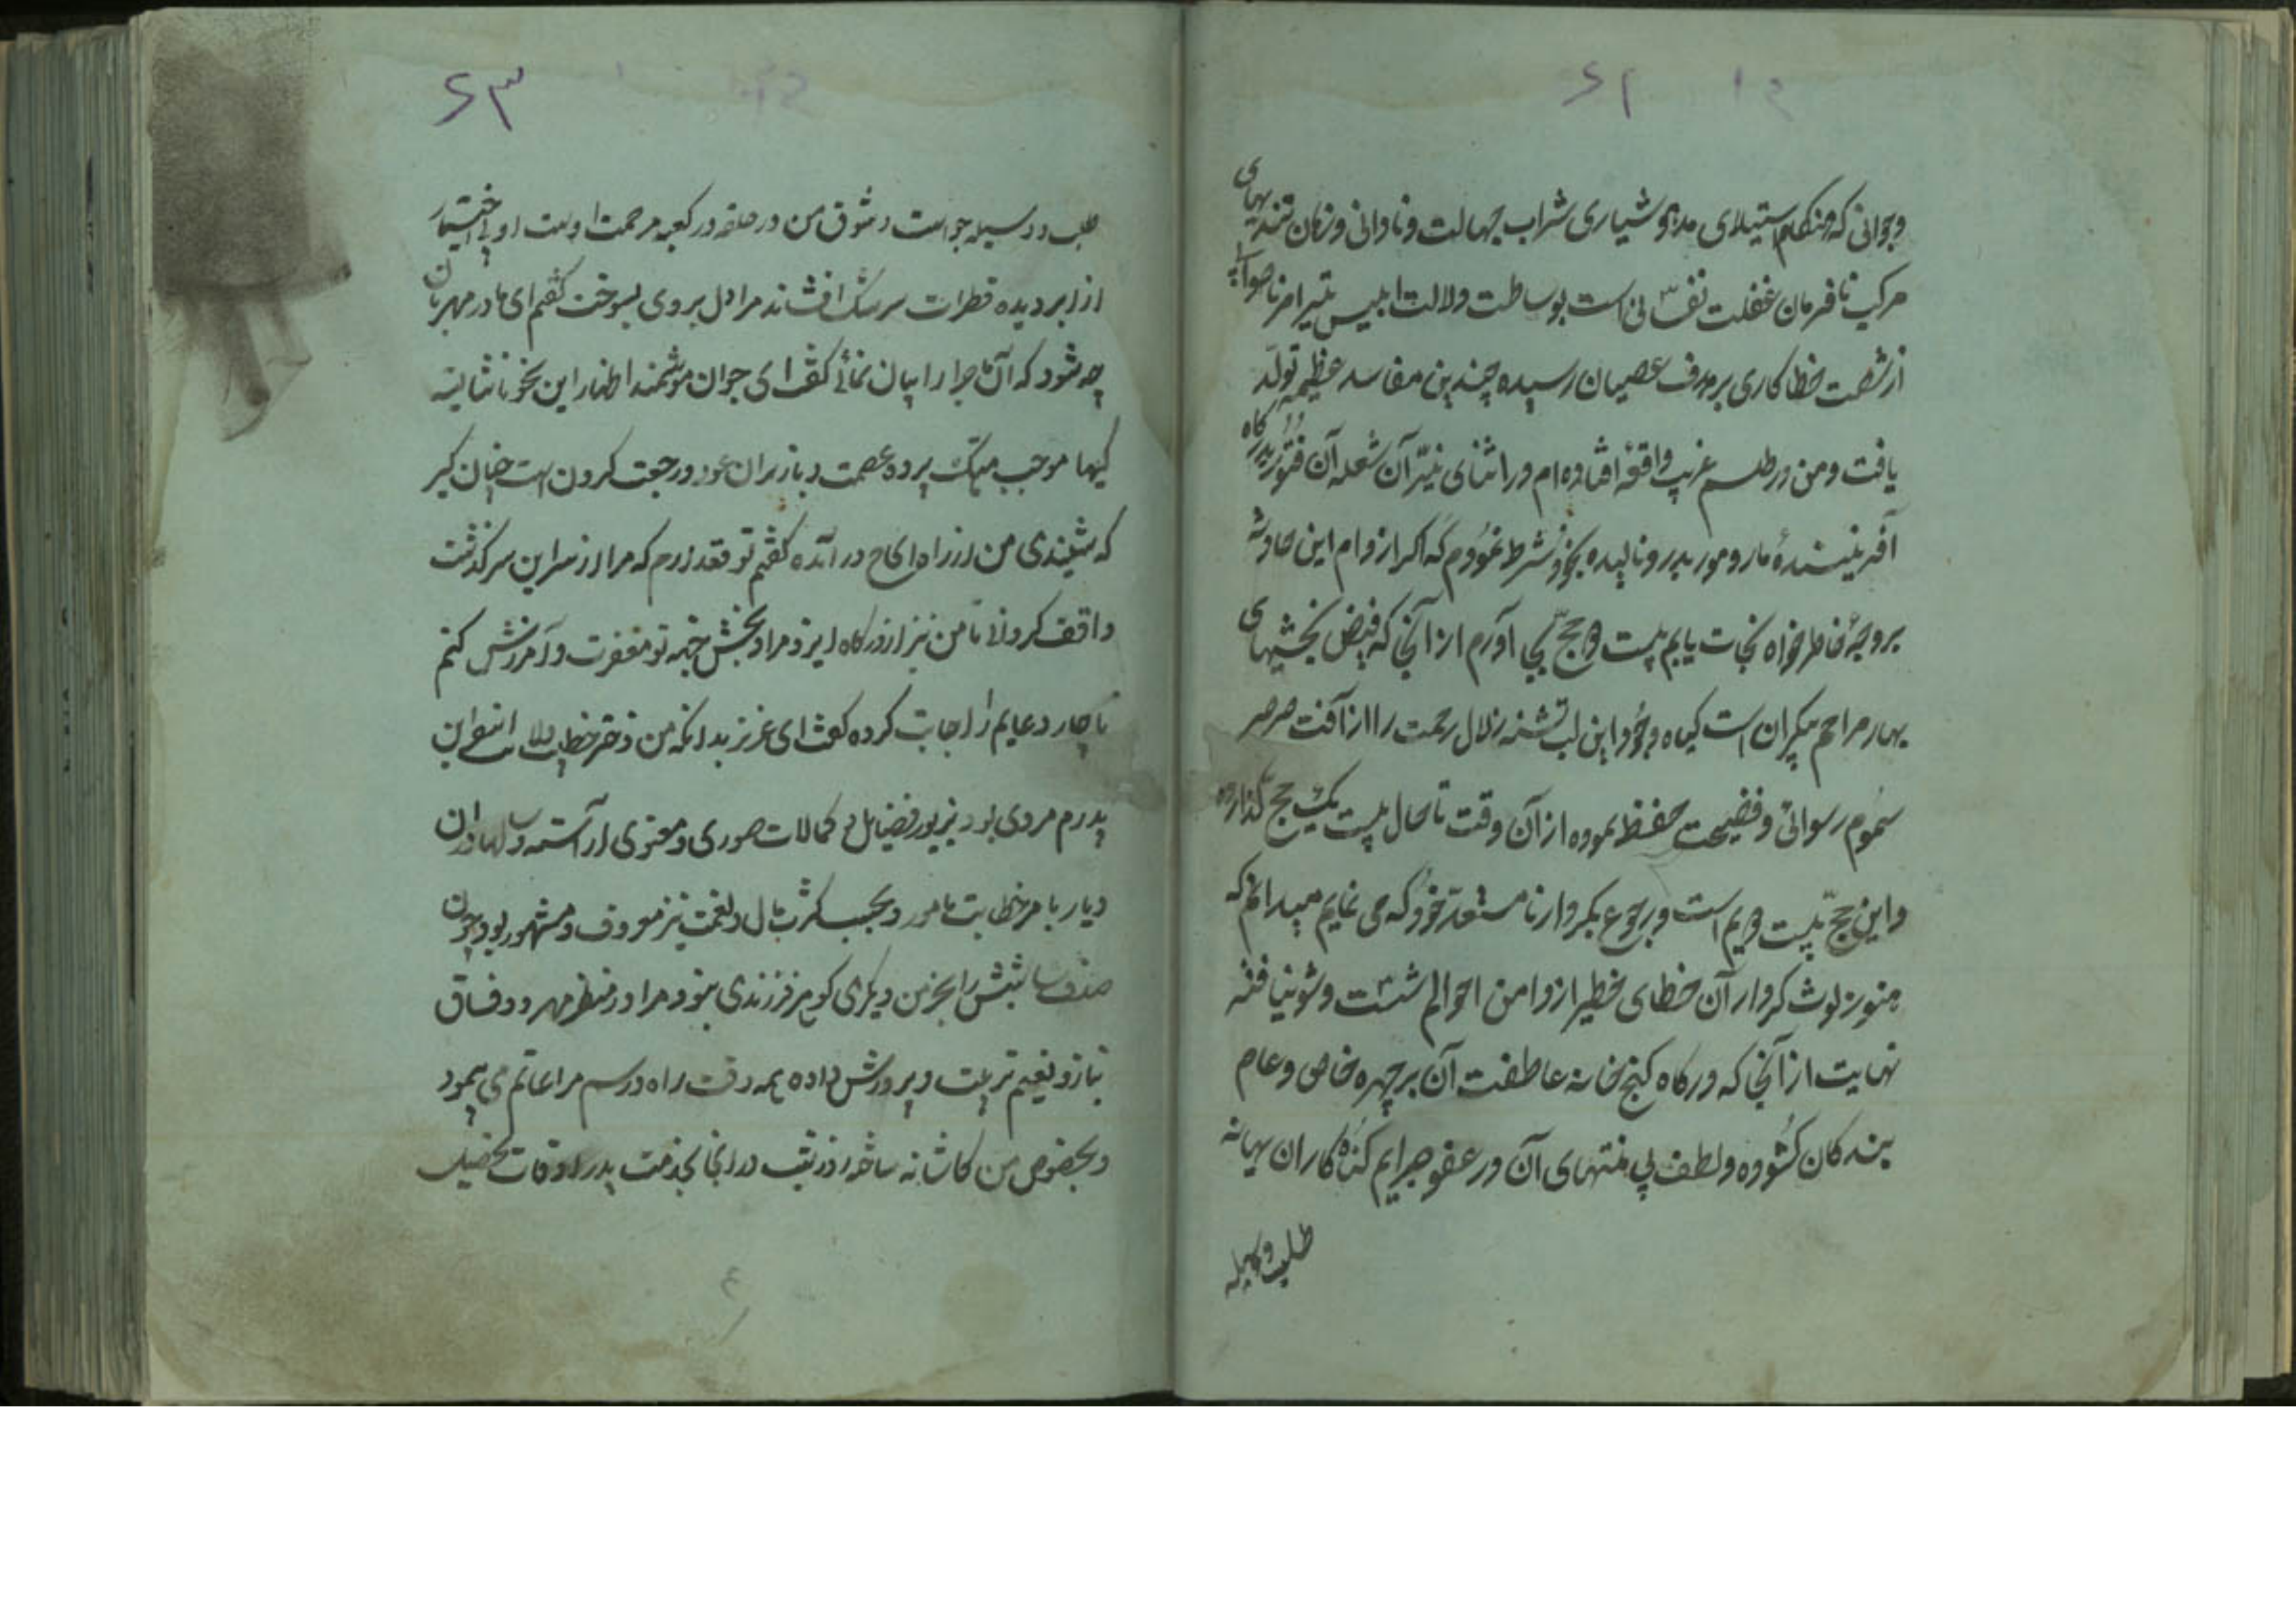 وجوانی که هنکام استیلای مدهوشیاری شراب جهالت ونادانی وزمان تندیهای
مرکب نافرمان غفلت نفسانی است بوساطت ودلالت ابلیس تیر امر ناصواب
از شصت خطاکاری بر هدف عصیان رسیده چندین مفاسد عظیمه تولّد
یافت ومن در طلسم غریب واقعه افتاده‌ام در اثنای نیّر آن شعله آن فتور بدرکاه
آفرینندهٔ مار ومور بدرونا لیده بخود شرط نمودم که اکر از دام این حادثه
بر وجه خاطرخواه نجات یابم بیست وحجّ بجای آورم از آنجا که فیض بخشیهای
بهار مراحم بیکران است کیاه وجود این لب تشنه زلال رحمت را از آفت صرصر
سموم رسوائی وفضیحت حفظ نموده از آن وقت تا حال بیست یک حج گذارده
واین حجّ بیست ویم است ورجوع بکردار نامستعدّ خود که می نمایم میدانم که
هنوز لوث کردار آن خطای خطیر از دامن احوالم شست وشو نیافته
نهایت از آنجا که درکاه کنج خانه عاطفت آن بر چهره خاص وعام
بندکان کشوده ولطف بی منتهای آن در عفو جرایم کناه کاران بهانه
طلب وسیله
۶۳
طلب ووسیله جواست وشوق من در حلقه در کعبه مرحمت اوست او بی اختیار
از ابر دیده قطرات سرشک افشاند مرا دل بر وی بسوخت کفتم ای مادر مهربان
چه شود که آن ماجرا را بیان نمائی کفت ای جوان هوشمند اظهار این نحو ناشایسته
کیها موجب هتک پرده عصمت وباز بران عود ورجعت کردن است چنان کیر
که شنیدی من از راه الحاح در آمده کفتم توقع دارم که مرا از سر این سرکذشت
واقف کردانی تا من نیز از درکاه ایزد مراد بخش جهة تو مغفرت وآمرزش کنم
ناچار دعایم را اجابت کرده کفت ای عزیز بدانکه من دختر خطیب بلاد اسفراین
پدرم مردی بود بزیور فضایل و کمالات صوری ومعنوی آراسته و سالها در آن
دیار بامر خطابت مامور وبحسب کثرت مال ونعمت نیز معروف ومشهور بود چون
صدف شبش را بجز من دیکری کوهر فرزندی نبود مرا در منظر مهر ووفاق
بناز ونعیم تربیت وپرورش داده همه وقت راه ورسم مراعاتم می پیمود
وبخصوص من کاشانه ساخته روز وشب در آنجا بخدمت پدر اوقات تحصیل